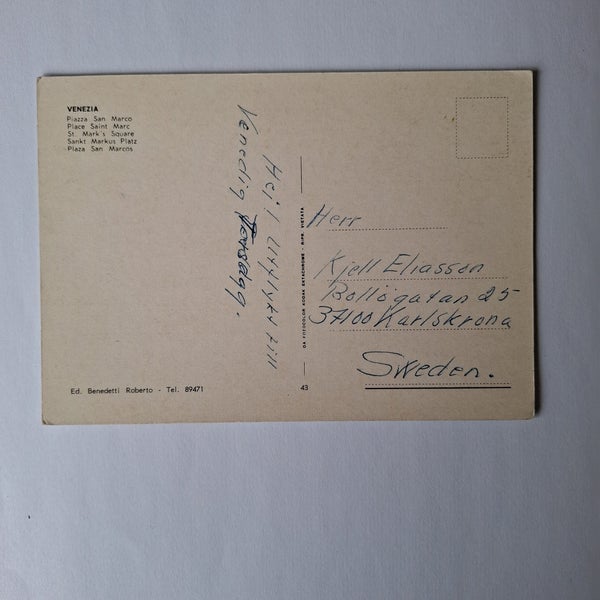 VENEZIA
Piazza San Marco
Place Saint Marc
St. Mark's Square
Sankt Markus Platz
Plaza San Marcos
Hej! Utflykt till
Venedig
Herr
Kjell Eliasson
Bollögatan 25
37100 Karlskrona
Sweden.
DA FOTOCOLOR KODAK EKTACHROME - RIPR. VIETATA
Ed. Benedetti Roberto - Tel. 89471
43